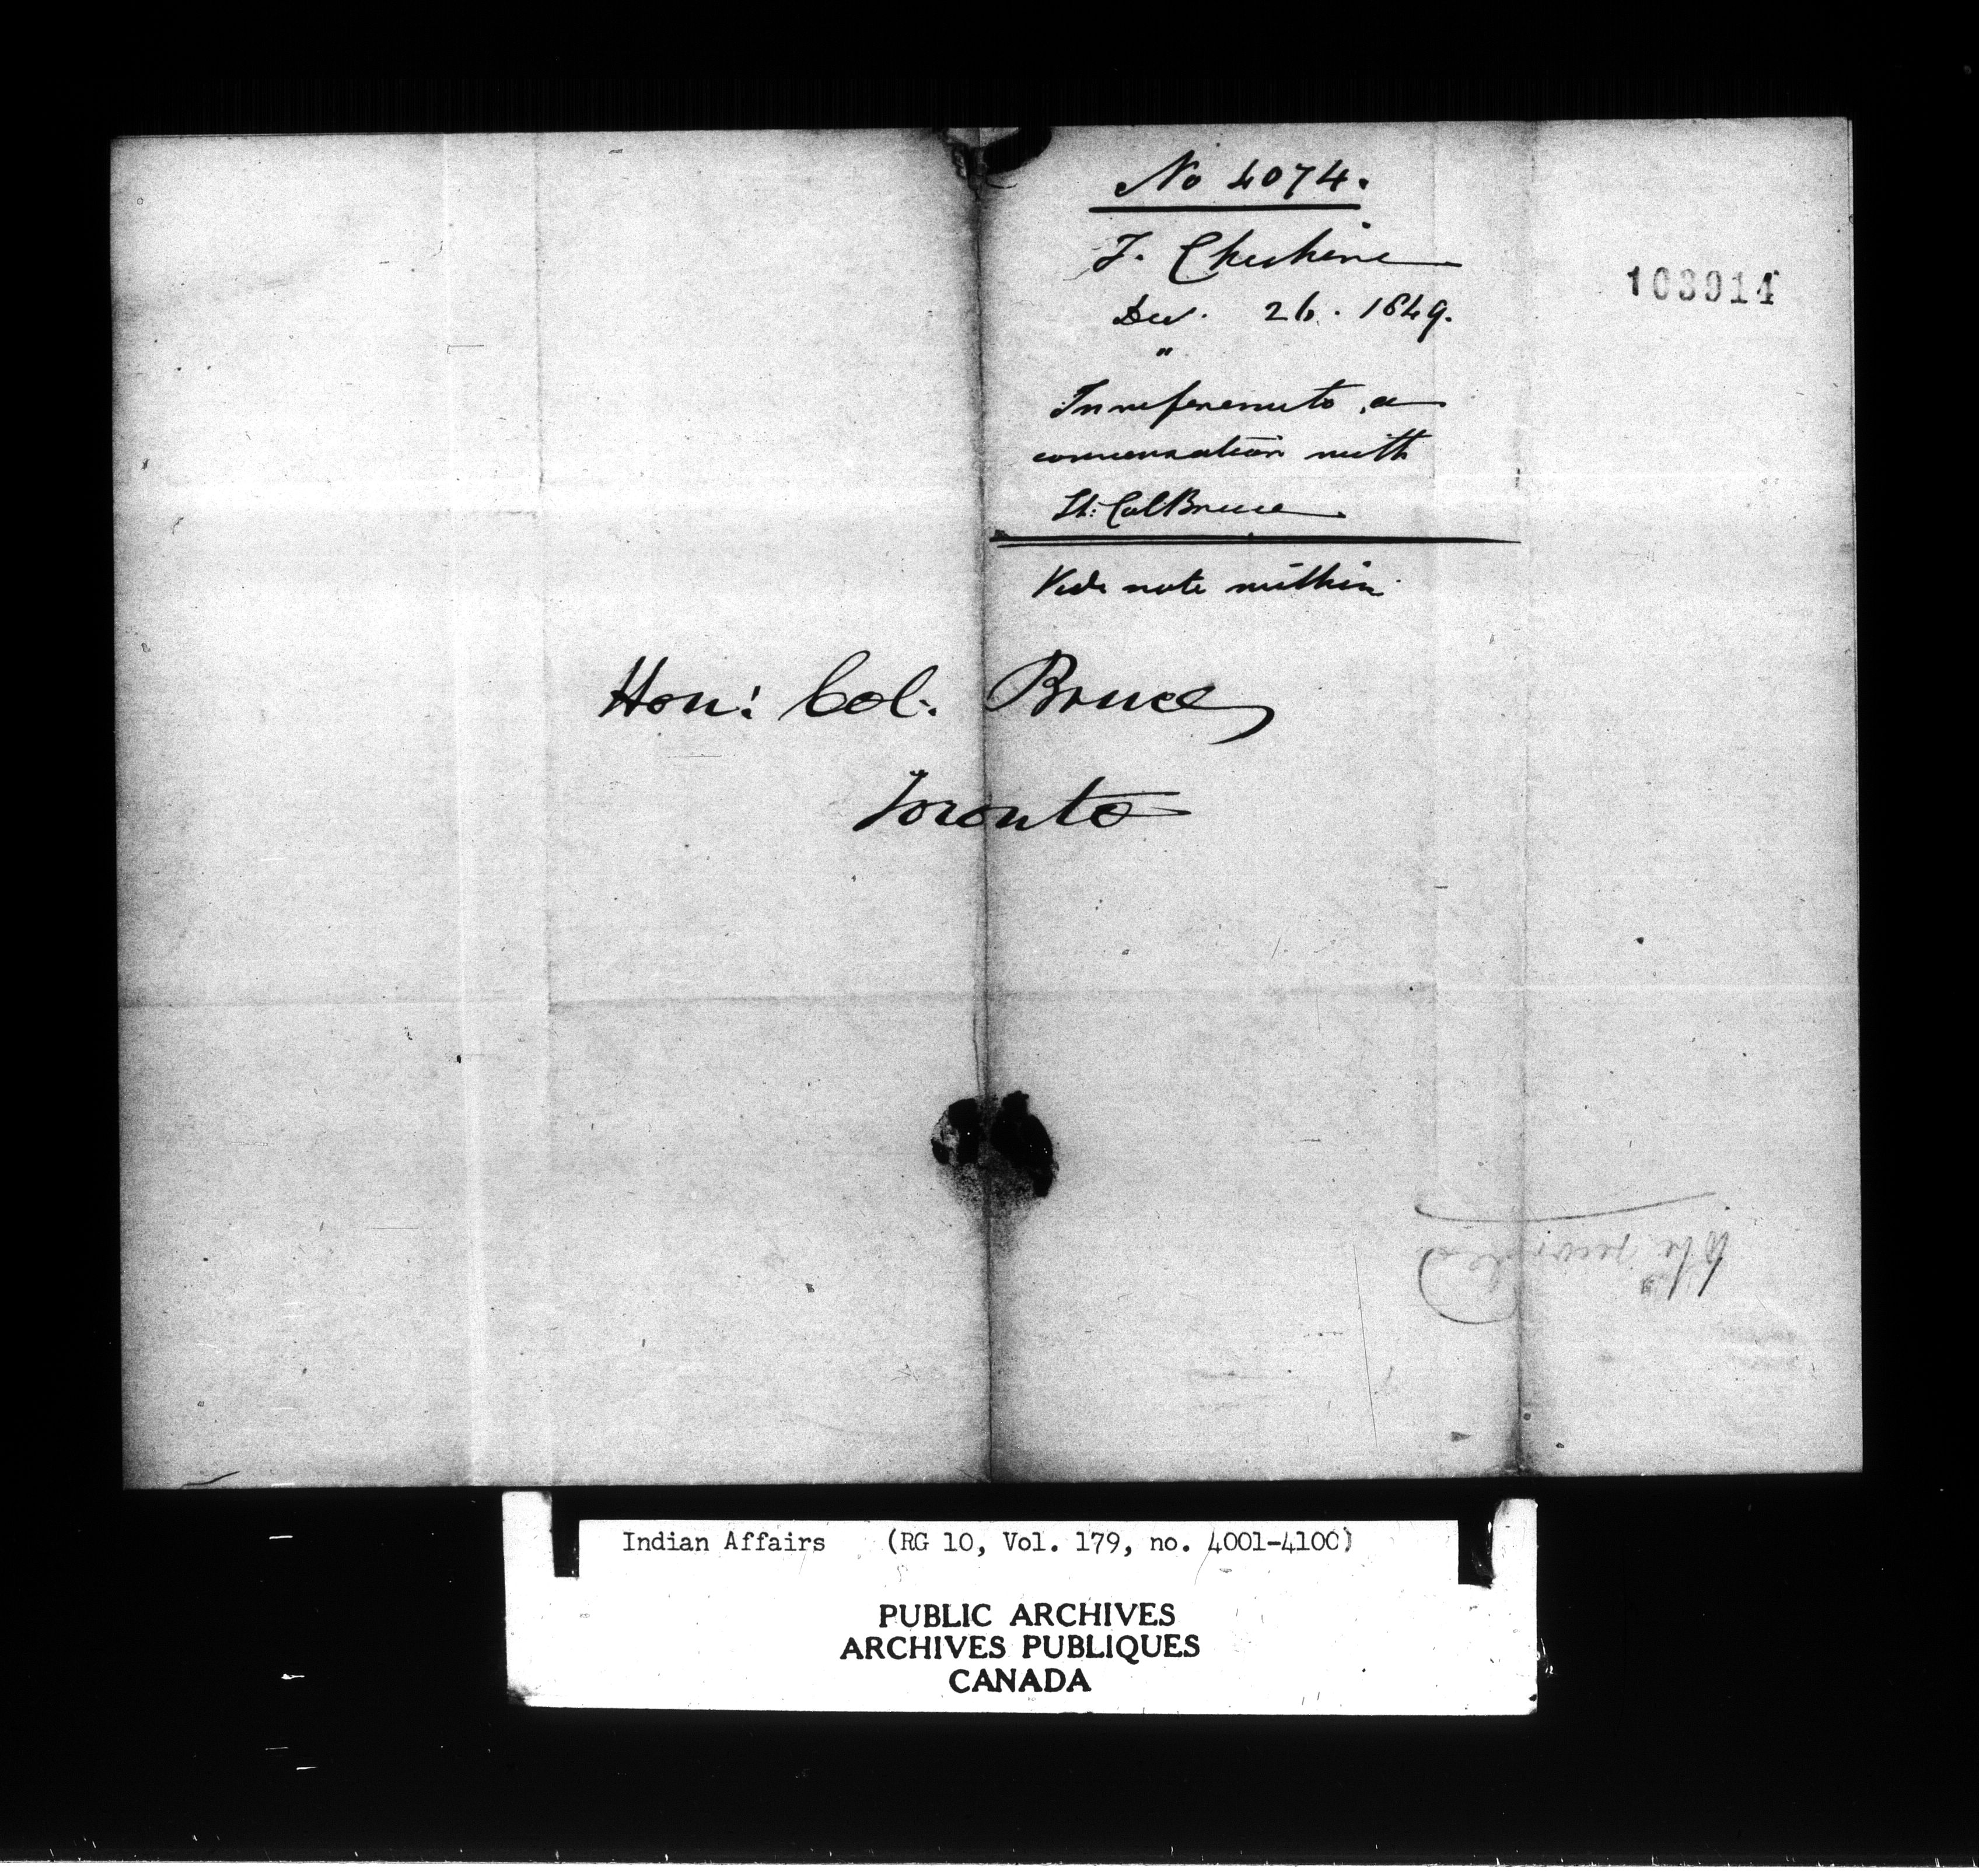 No 4074.
J. Cheshire
Dec. 26. 1849.
"
In reference to a
conversation with
Lt: Col Bruce
Vide note within
103914
Hon: Col. Bruce
Toronto
Indian Affairs (RG 10, Vol. 179, no. 4001-4100)
PUBLIC ARCHIVES
ARCHIVES PUBLIQUES
CANADA